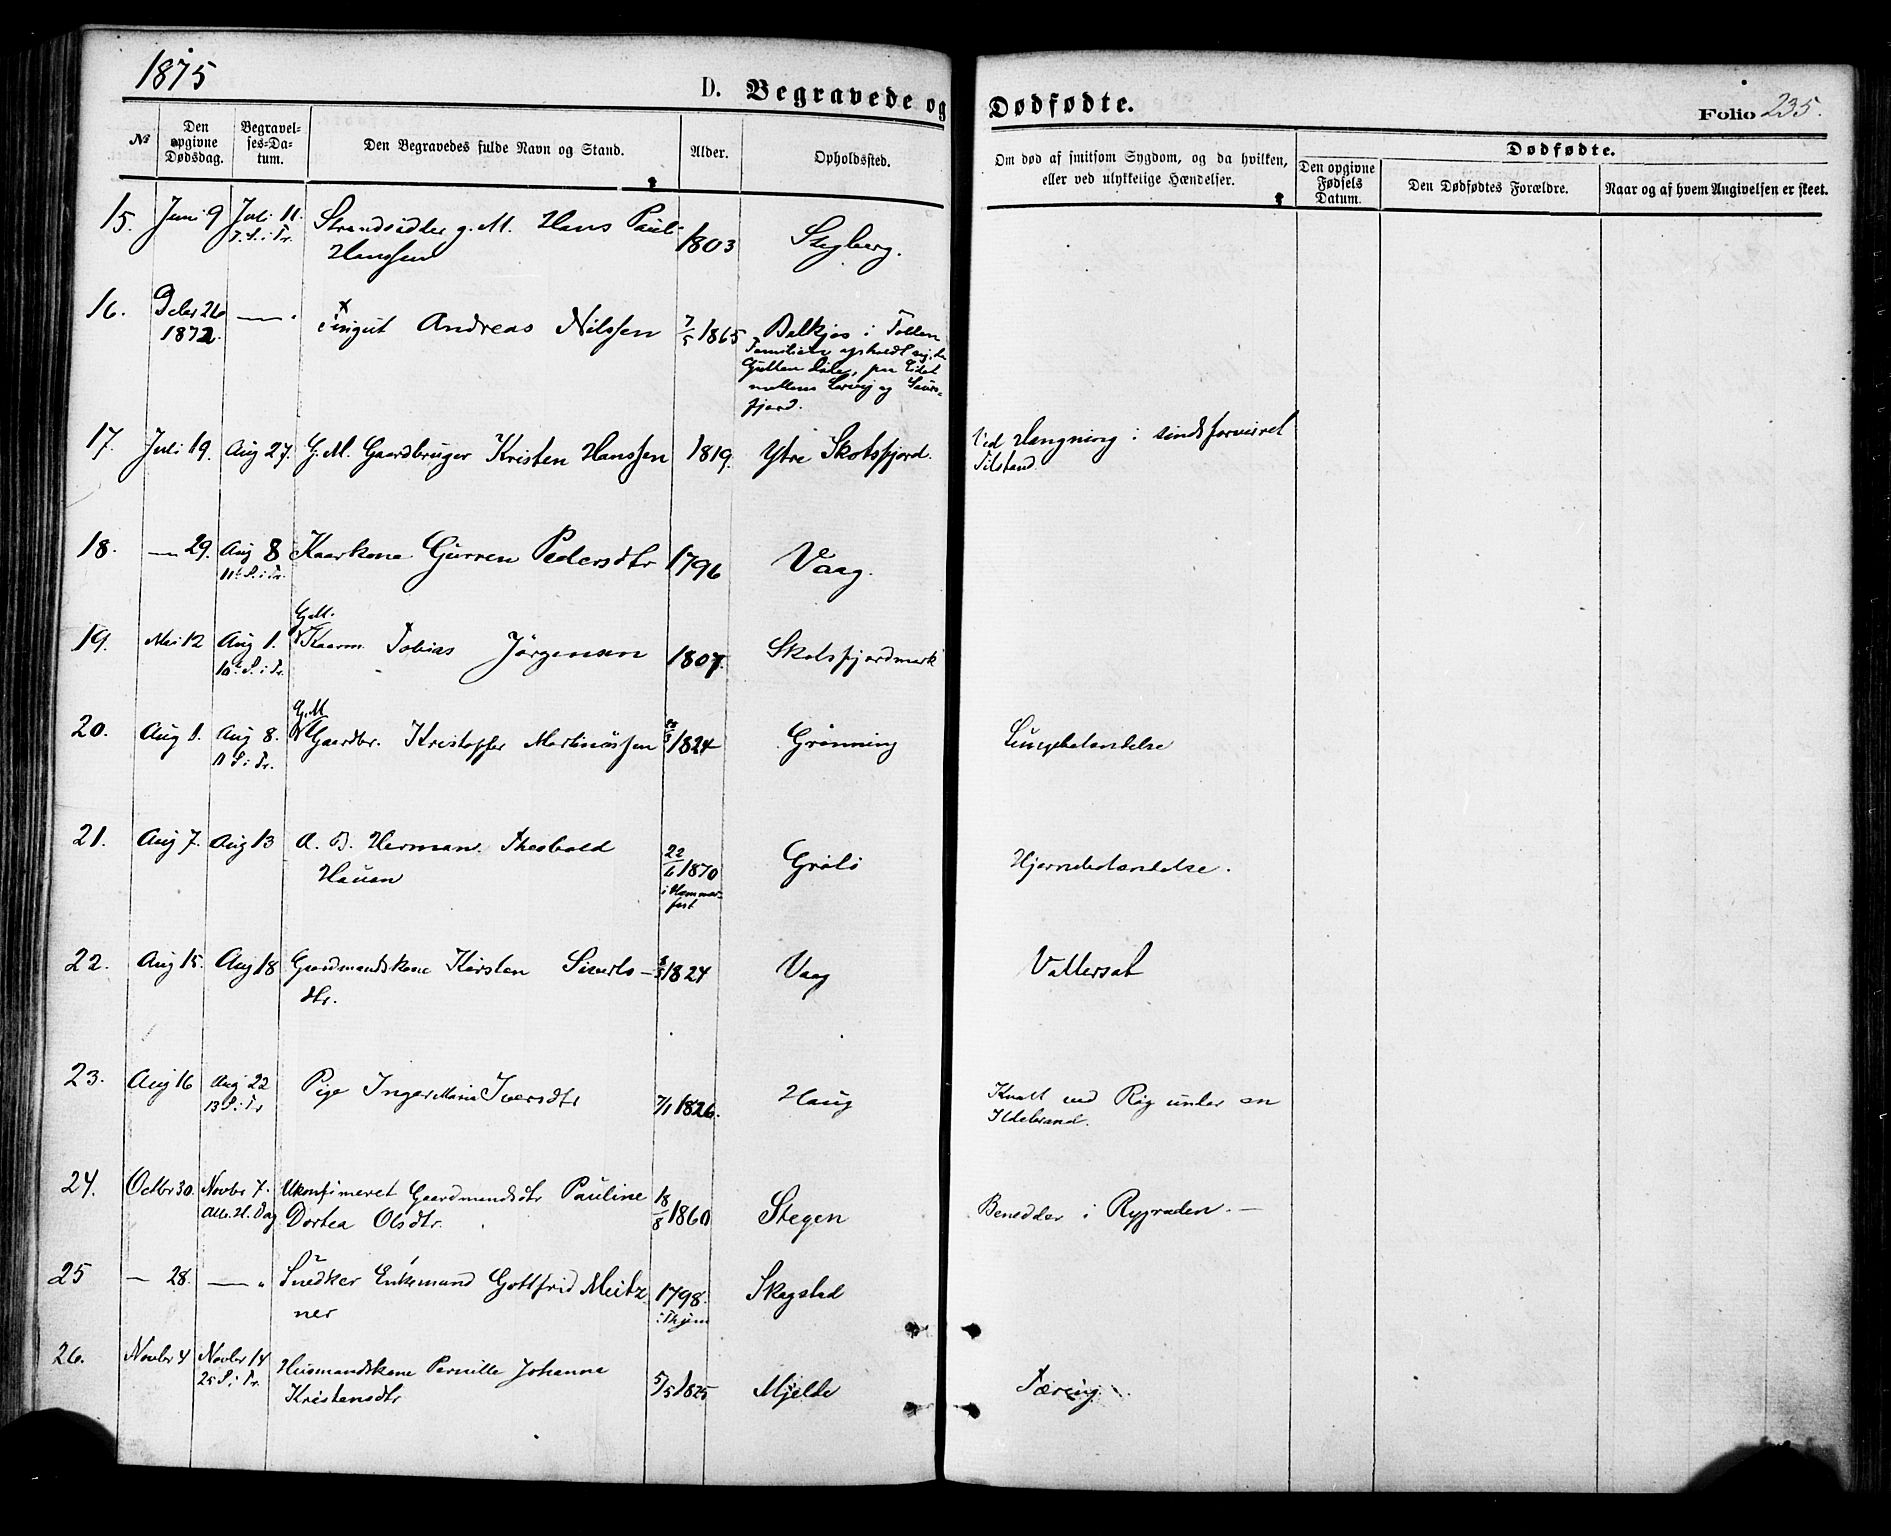 1875
D. Begravede og Dødfødte.
Folio 235.
№
Den opgivne Dødsdag.
Begravel-ses-Da-tum.
Den Begravedes fulde Navn og Stand.
Alder.
Opholdssted.
Om død af smitsom Sygdom, og da hvilken, eller ved ulykkelige Hændelser.
Dødfødte.
Den opgivne Fødsels Datum.
Den Dødfødtes Forældre.
Naar og af hvem Angivelsen er skeet.
15. Juni 9 Juli 11. Strandsidder g. M. Hans Paul 1803 Stegberg.
7. S. i Tr. Hanssen
16. Octbr 26 — Andreas Nilssen 7/5 1865 i Folden
1872. Familien opholdt sig
mellem og
fjord.
17. Juli 19. Aug 27. G. M. Gaardbruger Kristen Hanssen 1819. Ytre Skotsfjord. Ved Hængning i sindsforvirret
Tilstand.
18. — 29. Aug 8 Kaarkone Gurren Pedersdtr 1796 Vaag.
11te S. i Tr.
G. M.
19. Mai 12 Aug 1. Kaarm. Tobias Jørgensen 1807. Skotsfjordmark
10de S. i Tr.
G. M
20. Aug 1. Aug 8. Gaardbr. Kristoffer Martinussen 1824 Grønning Lungebetændelse
11 S. i Tr.
21. Aug 7. Aug 13 A. B. Herman Theobald 22/6 1870 Grøtø Hjernebetændelse.
Hauan i Hammer-
fest
22. Aug 15. Aug 18 Gaardmandskone Kirsten Siverts- 1824 Vaag Vattersot
dtr.
23. Aug 16 Aug 22 Pige Inger Maria Iversdtr 7/1 1826. Haug Kvalt ved Røg under en
13 S. i Tr Ildebrand.
24. Octbr 30. Novbr 7. Ukonfirmeret Gaardmandsdtr Pauline 18/8 1860 Stegen Benedder i Rygraden. —
All. H. Dag Dortea Olsdtr.
25 — 28. — " Snedker Enkemand Gottfrid Meitz 1798. Skagstad
ner i Thjem
26. Novbr 4 Novbr 14 Husmandskone Pernille Johanna 5/5 1825 Mjelde Tæring.
25 S. i Tr. Kristensdtr